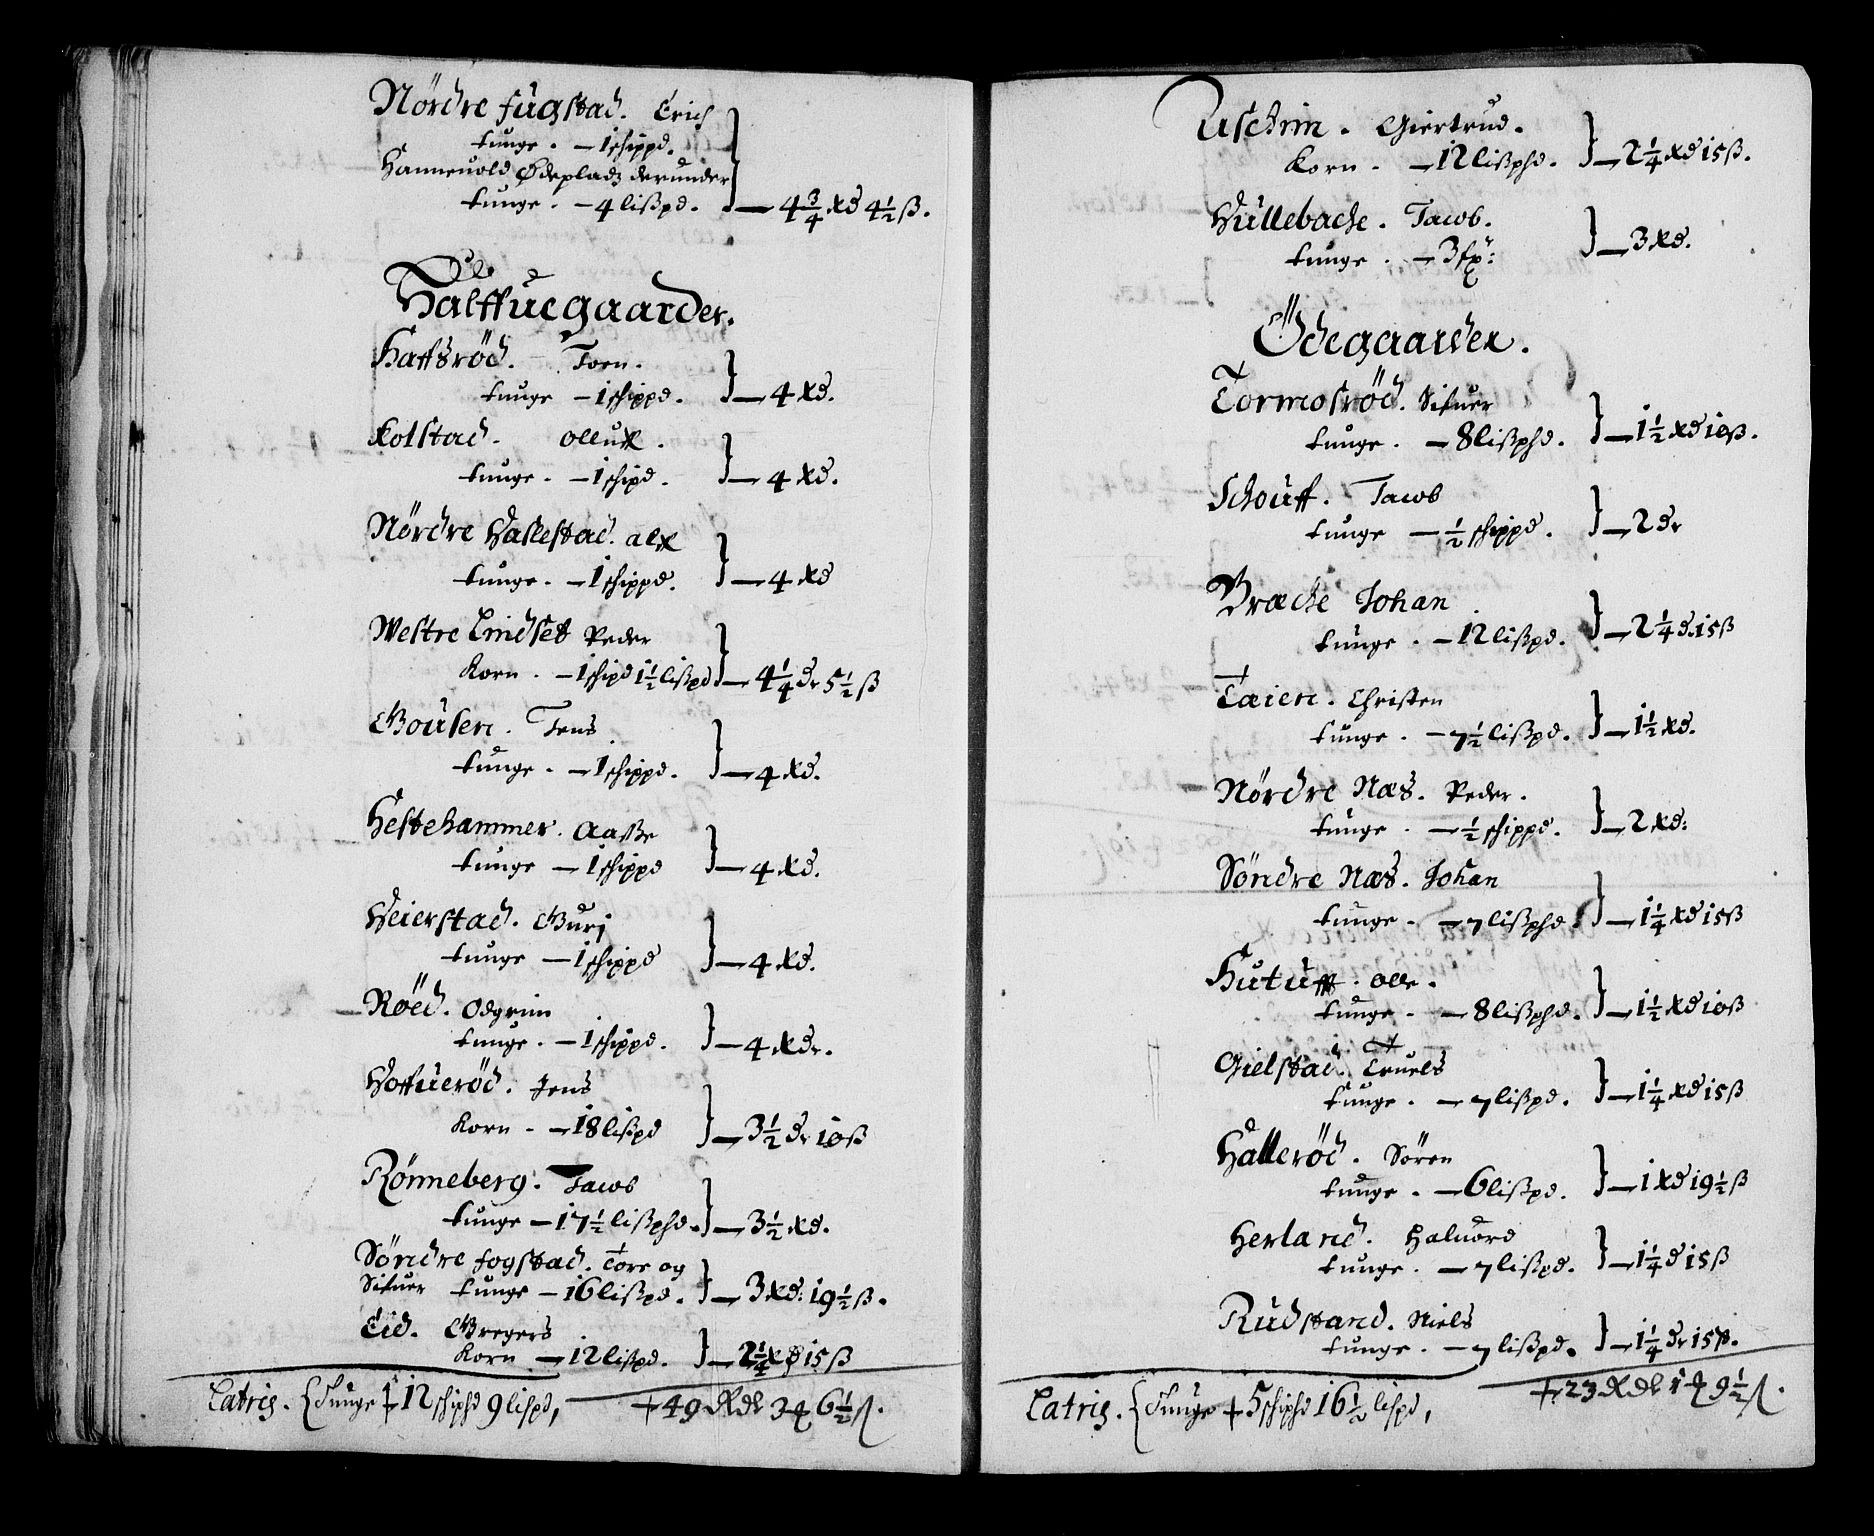 Nördre fügstad. Erich
tunge. — 1 schippd.
Hanneuold Ødepladz derunder
tunge. — 4 lißpd. — 4 3/4 Rd 4 1/2 ß.
Halffuegaarder.
Haffsröd. Torn.
tunge — 1 schippd. — 4 Rd.
Kolstad. Olluff.
tunge. — 1 schipd. — 4 Rd.
Nördre Valkestad. alf
tunge. — 1 schippd. — 4 Rd
Westre Lindset Peder
Korn. — 1 schipd 1 1/2 lißpd — 4 1/4 dr 5 1/2 ß
Gousen. Jens
tunge. — 1 schippd. — 4 Rd.
Hestehammer. Aasse
tunge — 1 schippd — 4 Rd.
Heierstad. Gurj
tunge — 1 schippd — 4 Rd.
Röed. Odgrim
tunge. — 1 schippd. — 4 Rdr.
Hoffueröd. Jens
Korn. — 18 lißpd — 3 1/2 dr 10 ß
Rönneberg. Jacob
tunge — 17 1/2 lißphd. — 3 1/2 Rd.
Söndre fogstad. Tore og
Sifuer tunge — 16 lißpd. — 3 Rd: 19 1/2 ß.
Eid. Gregers
Korn — 12 lißpd. — 2 1/4 Rd 15 ß
Latris. { Tunge + 12 schiphd 9 lispd, — + 49 Rdr 3 q 6 1/2 ß.
Aschim. Giertrud.
Korn. — 12 lißphd. — 2 1/4 Rd 15 ß.
Hüllebache. Jacob.
tunge. — 3 fx: — 3 Rd.
Ödegaarder.
Tormosröd. Sifuer
tunge. — 8 lißphd. — 1 1/2 Rd 10 ß.
Schouff. Jacob
tunge — 1/2 schippd. — 2 dr
Bræche Johan
tunge. — 12 lißpd. — 2 1/4 d. 15 ß
Tæien. Christen
tunge. — 7 1/2 lißpd. — 1 1/2 Rd.
Nördre Næs. Peder.
tunge. — 1/2 schippd. — 2 Rd:
Söndre Næs. Johan
tunge. — 7 lißphd — 1 1/4 Rd 15 ß
Hutuff. Olle.
tunge. — 8 lißphd. — 1 1/2 Rd 10 ß
Gielstad. Truels
tunge. — 7 lißpd. — 1 1/4 Rd 15 ß
Halleröd. Sören
tunge. — 6 lißpd. — 1 Rd 19 1/2 ß
Herland. Haluord
tunge. — 7 lißpd. — 1 1/4 d 15 ß
Rudstand. Niels
tunge. — 7 lißpd. — 1 1/4 dr 15 ß.
Latris. { Tunge + 5 schiphd 16 1/2 lispd, + 23 Rdr 1 q 9 1/2 ß.